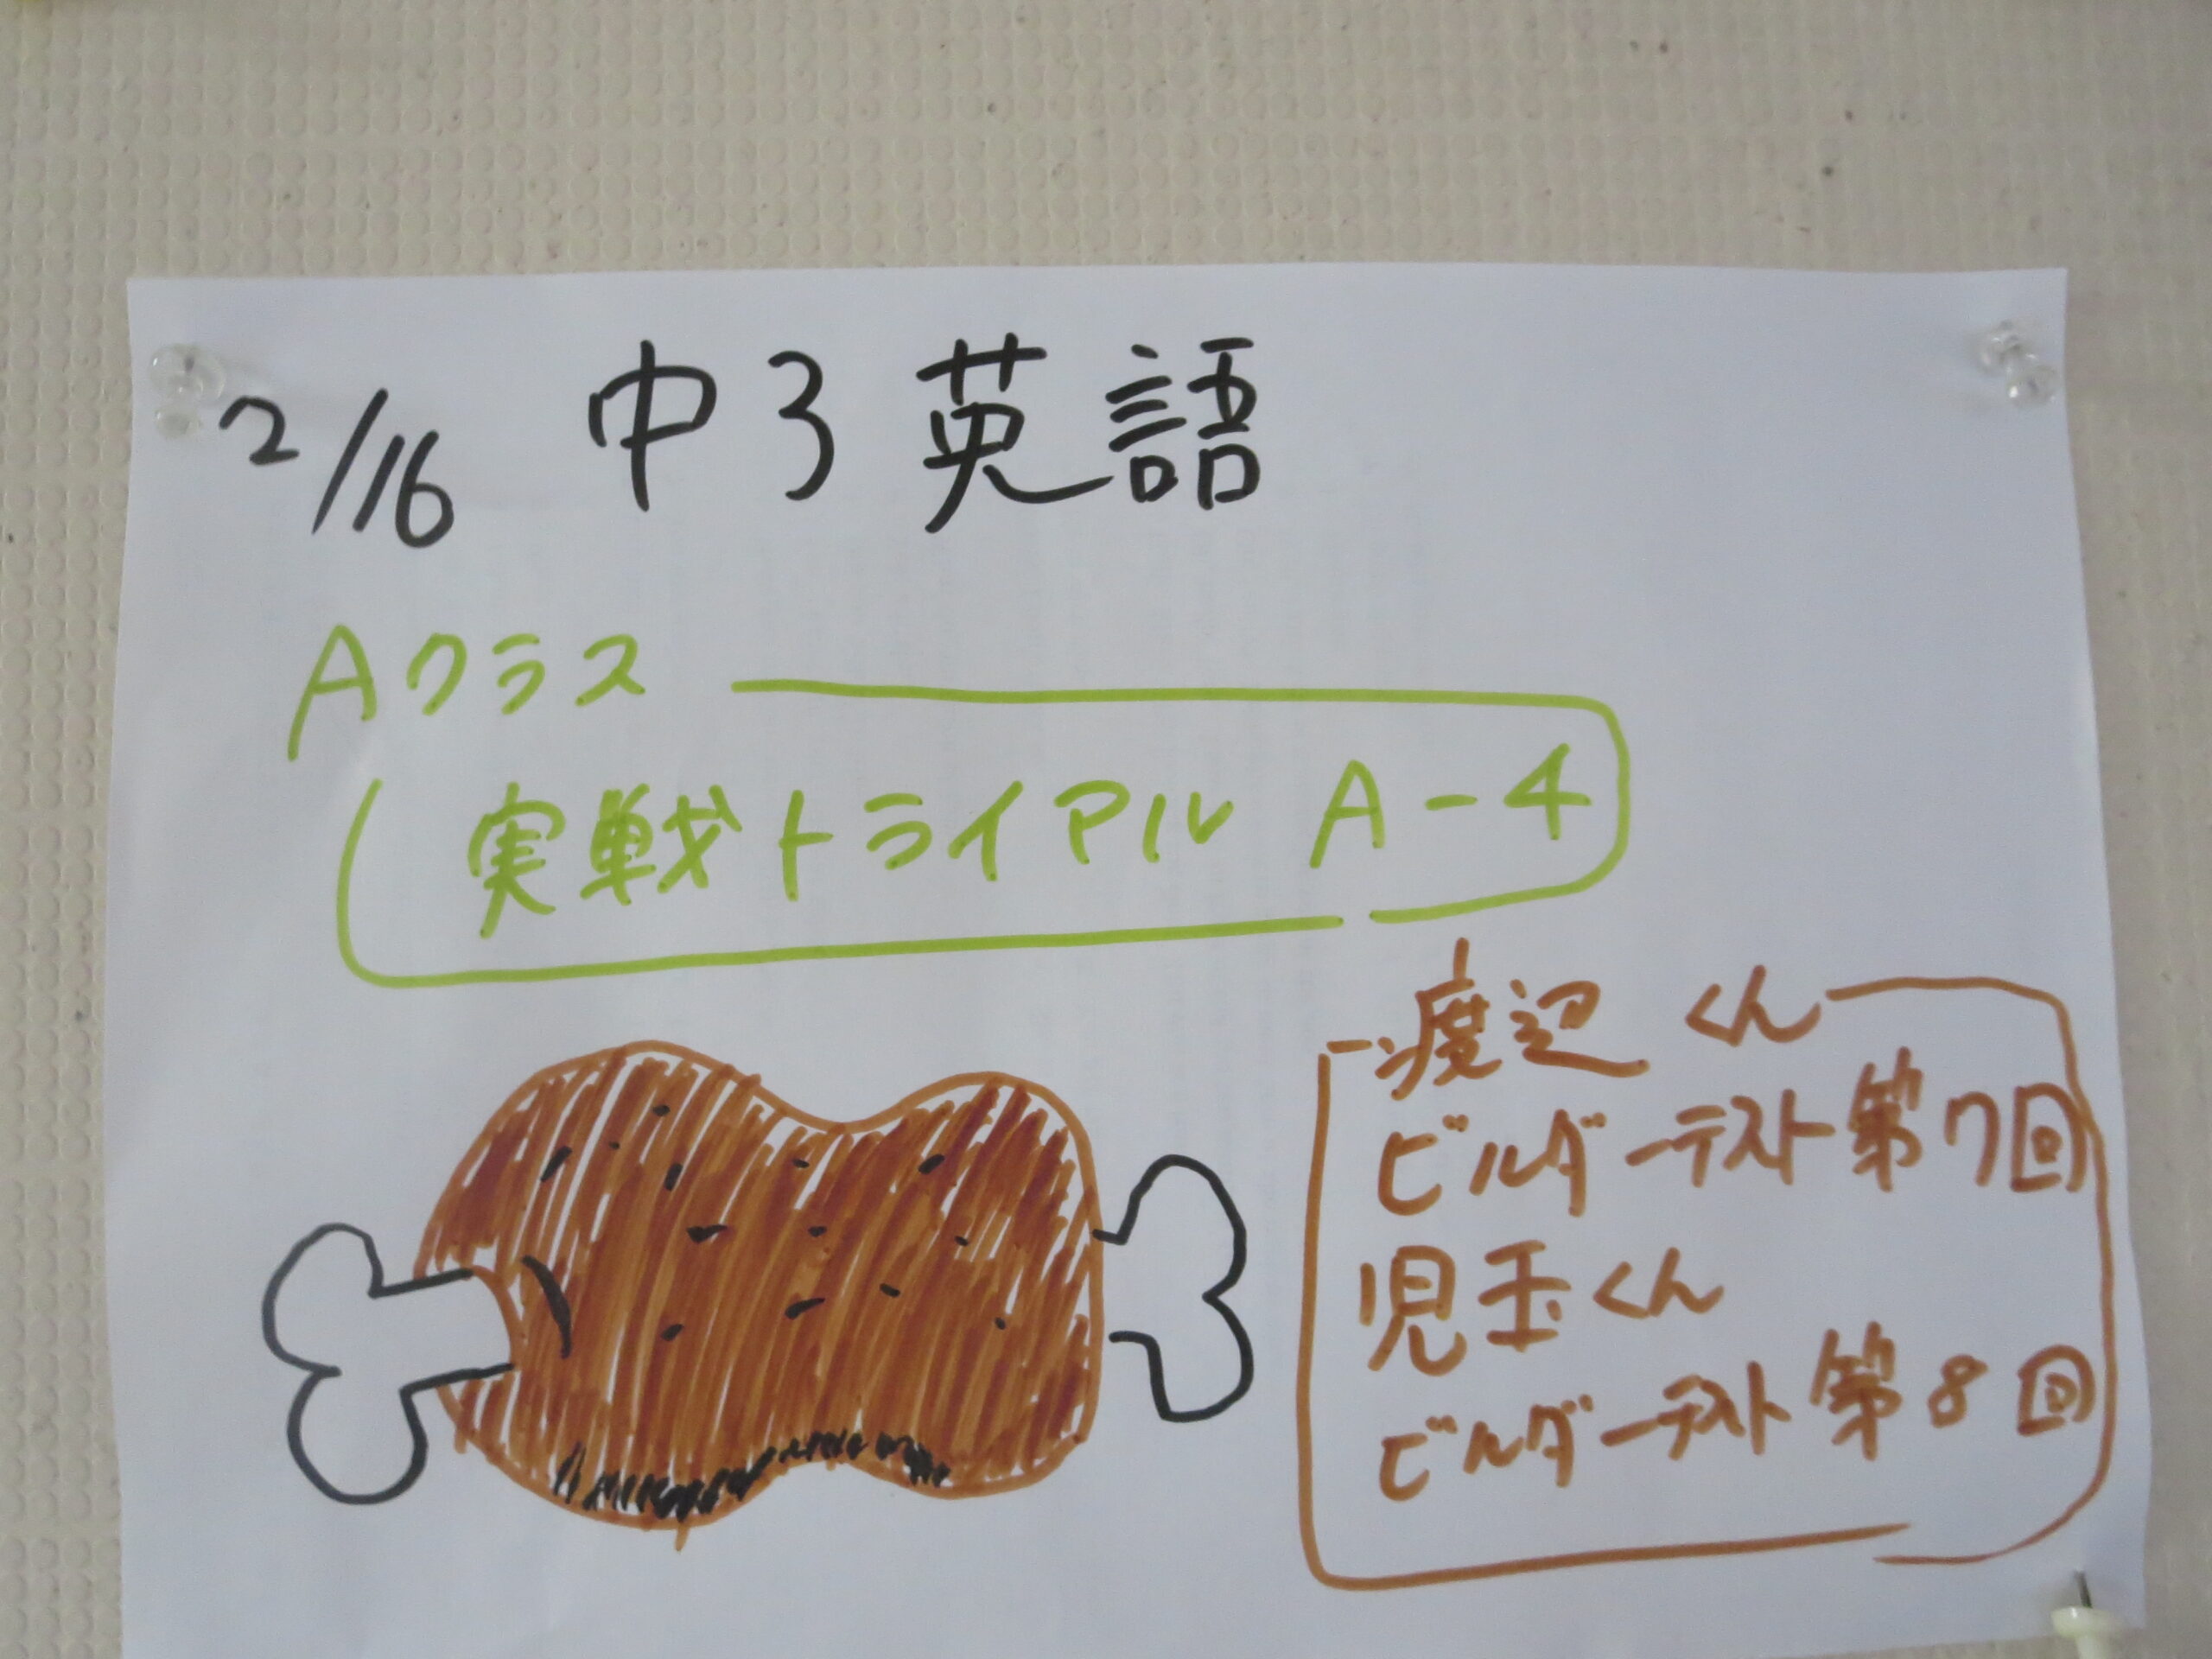 2/16 中3英語
Aクラス
実戦トライアル A-4
渡辺くん
ビルダーテスト第7回
児玉くん
ビルダーテスト第8回